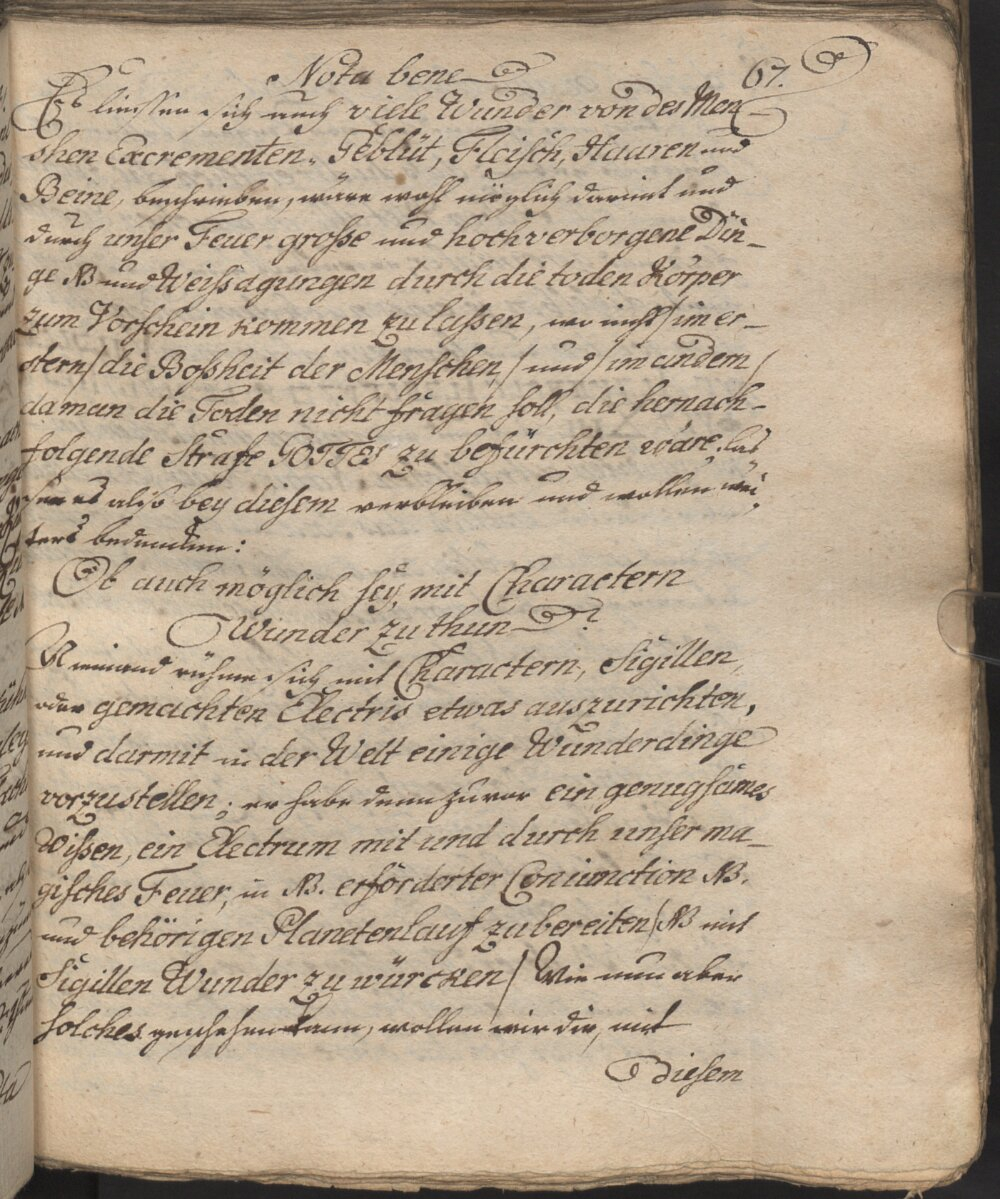 Nota bene 67.
Es liessen sich auch viele Wunder von des Men-
schen Excrementen, Geblüt, Fleisch, Haaren und
Beine, beschrieben, wäre wohl möglich darmit und
durch unser Feuer große und hochverborgene Din-
ge NB und Weißagungen durch die toden Körper
zum Vorschein kommen zu laßen, wo nicht / im er-
stern / die Boßheit der Menschen, / und / im andern /
da man die Toden nicht fragen soll, die hernach-
folgende Strafe GOTTES zu befürchten wäre. las
sen es also bey diesem verbleiben und wollen wei-
ters bedeuten:
Ob auch möglich sey, mit Charactern
Wunder zu thun?
Niemand rühme sich mit Charactern, Sigillen,
oder gemachten Electris etwas auszurichten,
und darmit in der Welt einige Wunderdinge
vorzustellen; er habe denn zuvor ein genugsames
Wißen, ein Electrum mit und durch unser ma-
gisches Feuer, in NB. erforderter Coniunction NB.
und behörigen Planetenlauf zu bereiten / NB mit
Sigillen Wunder zu würcken / Wie nun aber
solches geschehen kann, wollen wir dir, mit
Diesem